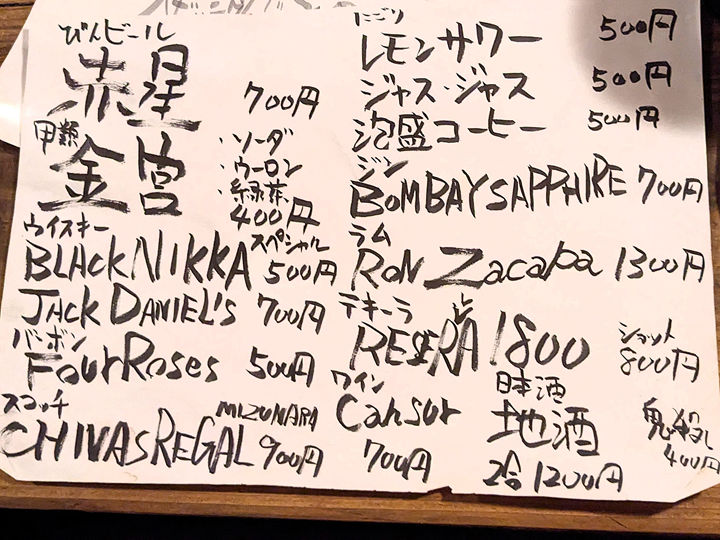 びんビール
赤星 700円
甲類
金宮
・ソーダ
・ウーロン
・緑茶
400円
ウイスキー
BLACK NIKKA スペシャル 500円
JACK DANIEL'S 700円
バーボン
Four Roses 500円
スコッチ
CHIVAS REGAL MIZUNARA 900円
にごり
レモンサワー 500円
ジャス・ジャス 500円
泡盛コーヒー 500円
ジン
BOMBAY SAPPHIRE 700円
ラム
RON Zacapa 1300円
テキーラ
RESERVA 1800 ショット 800円
ワイン
Cansur
700円
日本酒
地酒
2合 1200円
鬼殺し
400円